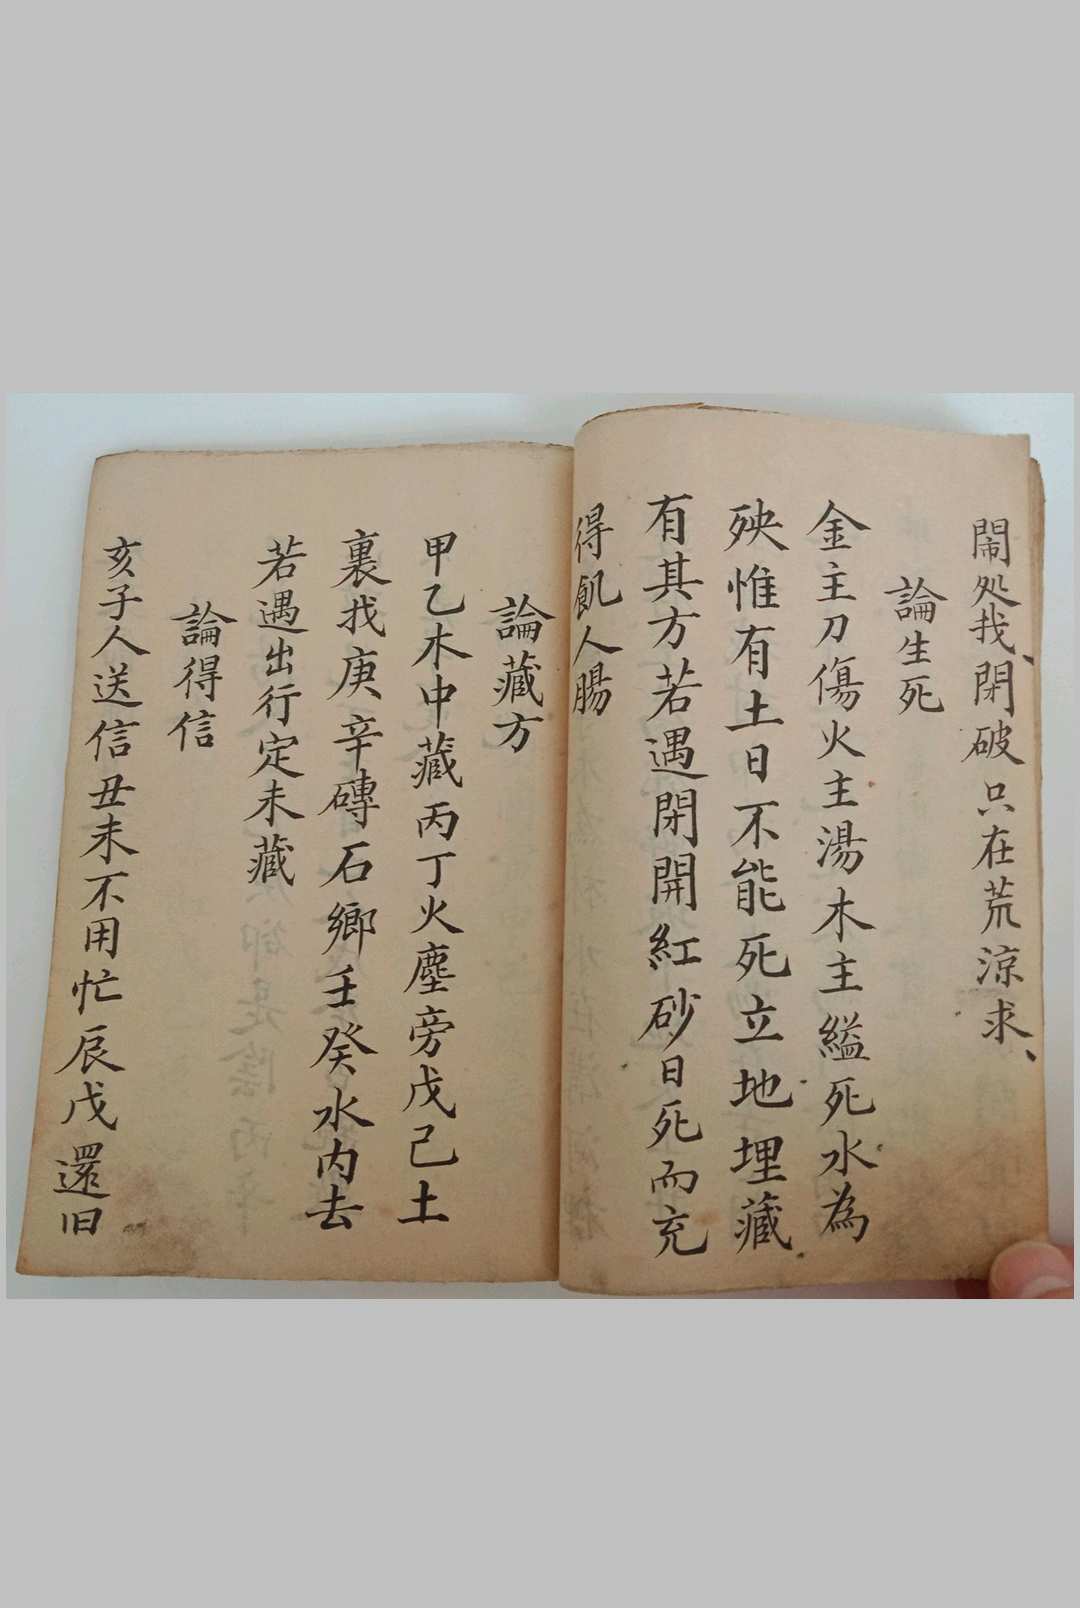 鬧処找閉破只在荒涼求
論生死
金主刀傷火主湯木主縊死水為
殃惟有土日不能死立地埋藏
有其方若遇閉開紅砂日死而充
得飢人腸
論藏方
甲乙木中藏丙丁火塵旁戊己土
裏找庚辛磚石鄉壬癸水内去
若遇出行定未藏
論得信
亥子人送信丑未不用忙辰戊還旧